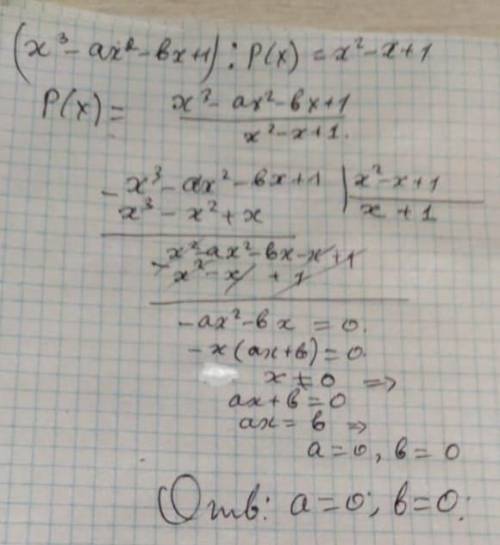 (x³-ax²-вx+1) : P(x) = x²-x+1
P(x) = x³-ax²-вx+1
x²-x+1.
- x³-ax²-вx+1 | x²-x+1
x³-x²+x x+1
- x²-ax²-вx-x+1
x²-x +1
-ax²-вx = 0.
-x(ax+в)=0.
x ≠ 0 =>
ax+в=0
ax = в =>
a=0, в=0
Отв: a=0; в=0;